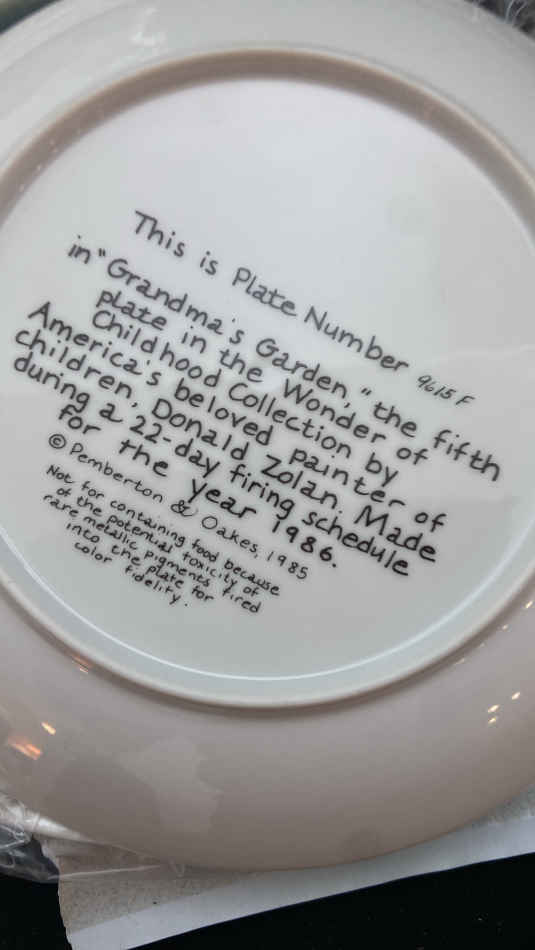 This is Plate Number 9615 F
in "Grandma's Garden," the fifth
plate in the Wonder of
Childhood Collection by
America's beloved painter of
children, Donald Zolan. Made
during a 22-day firing schedule
for the year 1986.
© Pemberton & Oakes, 1985
Not for containing food because
of the potential toxicity of
rare metallic pigments fired
into the plate for
color fidelity.